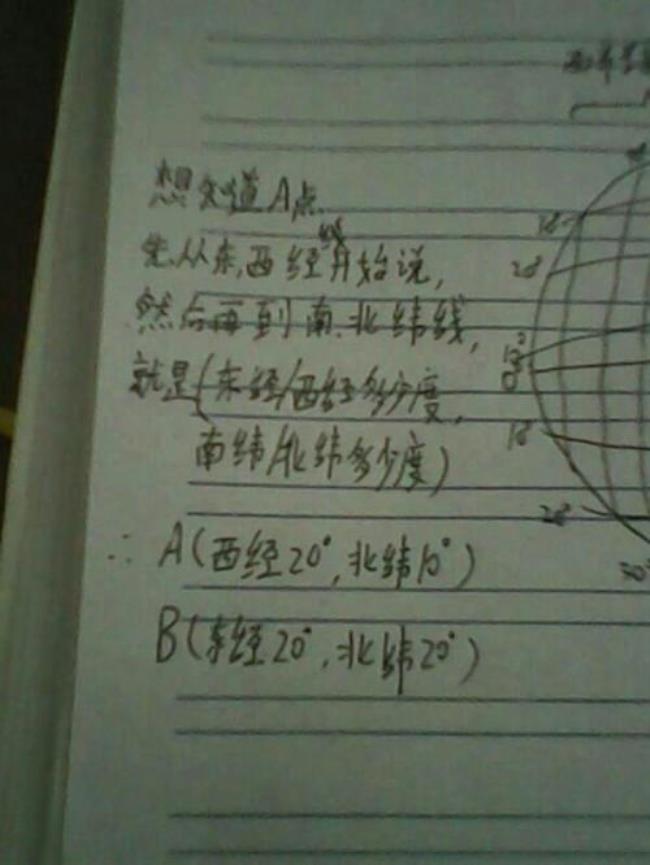 想知道A点
先从东,西经线开始说,
然后再到南、北纬线,
就是(东经/西经多少度,
南纬/北纬多少度)
∴ A(西经20°,北纬10°)
B(东经20°,北纬20°)
10°
20°
10°
0°
10°
20°